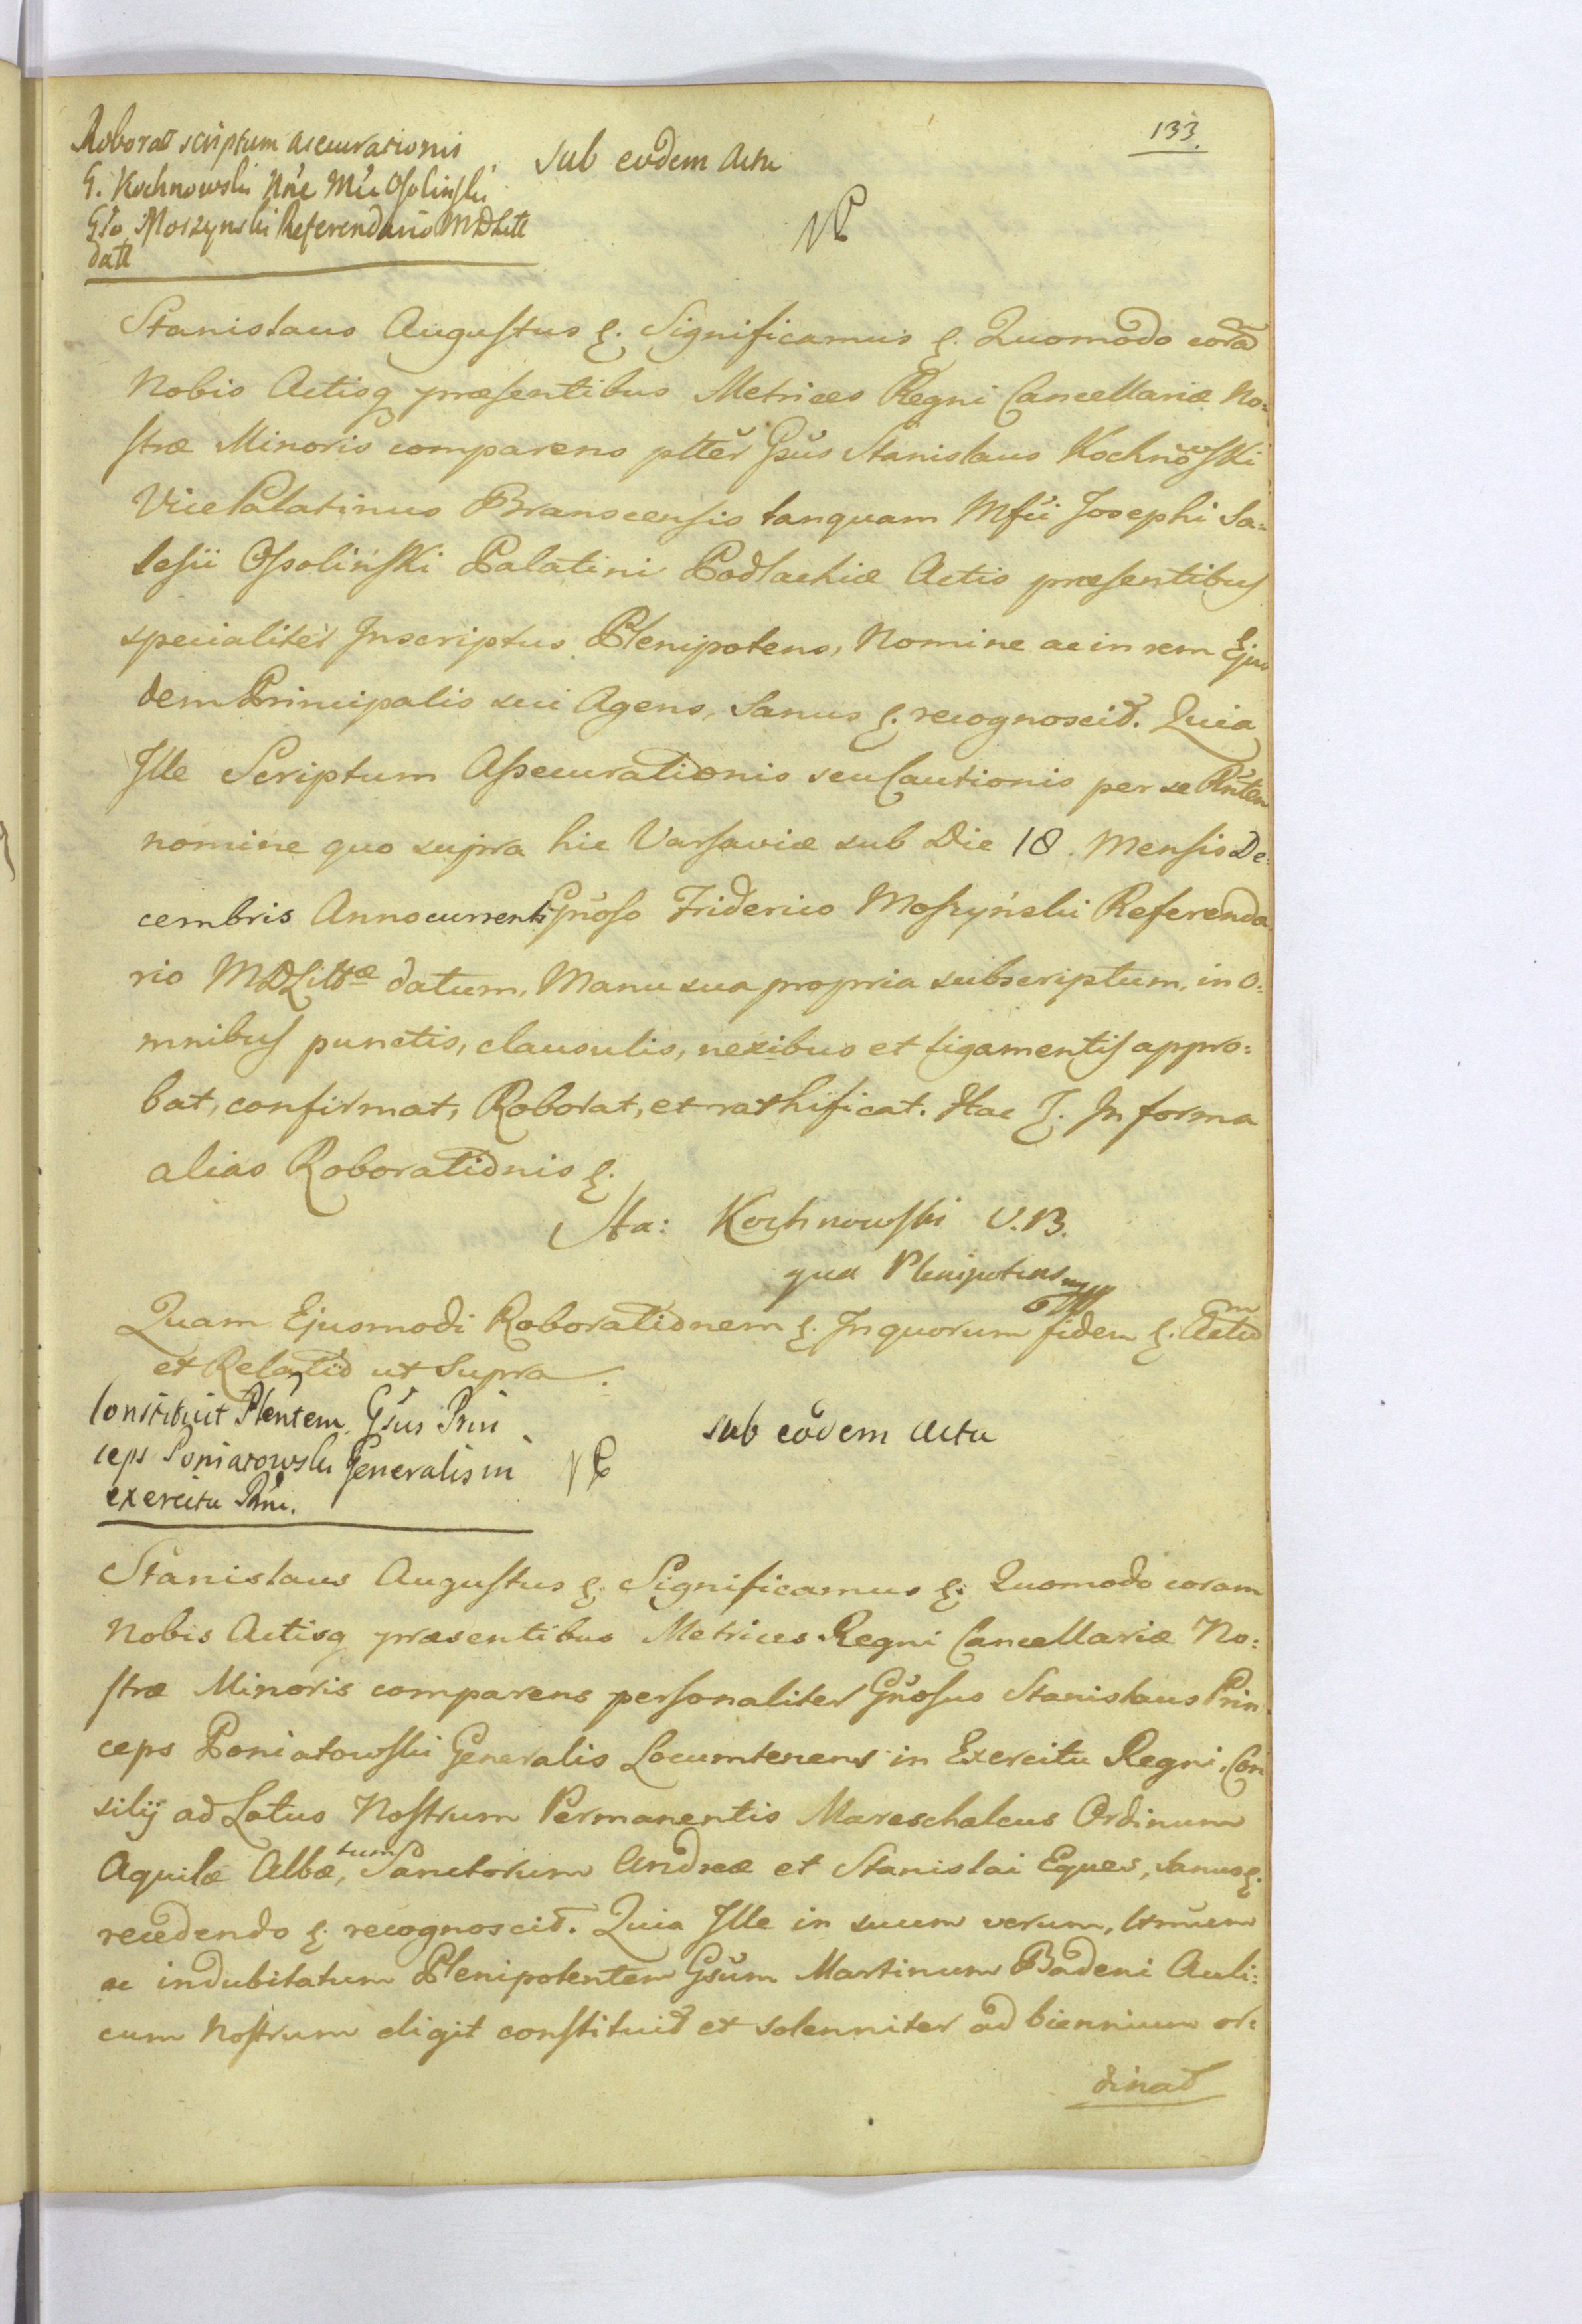 133.
Roborat scriptum assecurationis
G. Kochnowski Nñe Mci Ossolinski
Gso Moszynski Referendario MDLitt
datt
sub eodem Actu
Stanislaus Augustus &. Significamus &. Quomodo corã
Nobis Actisq præsentibus Metrices Regni Cancellariæ No:
stræ Minoris comparens pltter Gsus Stanislaus Kochnowski
Vice Palatinus Branscensis tanquam Mfci Josephi Sa:
lesii Ossoliński Palatini Podlachiæ Actis præsentibus
specialiter Inscriptus Plenipotens, Nomine ac in rem Ejus
dem Principalis sui Agens, Sanus &. recognoscit. Quia
Ille Scriptum Assecurationis seu Cautionis per se Pñtem
nomine quo supra hic Varsaviæ sub Die 18. Mensis De:
cembris Anno currenti Gñoso Friderico Moszyński Referenda
rio MDLittæ datum, Manu sua propria subscriptum, in o:
mnibus punctis, clausulis, nexibus et ligamentis appro:
bat, confirmat, Roborat, et rathificat. Hac &. In forma
alias Roborationis &.
Sta: Kochnowski V.B.
qua Plenipotens
Quam Ejusmodi Roborationem &. In quorum fidem &. Actum
et Relatio ut Supra.
Constituit Plentem Gsus Prin
ceps Poniatowski Generalis in
exercitu Rni.
sub eodem Actu
Stanislaus Augustus &. Significamus &. Quomodo coram
Nobis Actisq præsentibus Metrices Regni Cancellariæ No:
stræ Minoris comparens personaliter Gñosus Stanislaus Prin
ceps Poniatowski Generalis Locumtenens in Exercitu Regni, Con
silij ad Latus Nostrum Permanentis Mareschalcus Ordinum
Aquilæ Albæ, tum Sanctorum Andreæ et Stanislai Eques, Sanus &.
recedendo &. recognoscit. Quia Ille in suum verum, ltmum
ac indubitatum Plenipotentem Gsum Martinum Badeni Auli:
cum Nostrum eligit constituit et solenniter ad biennium or:
dinat